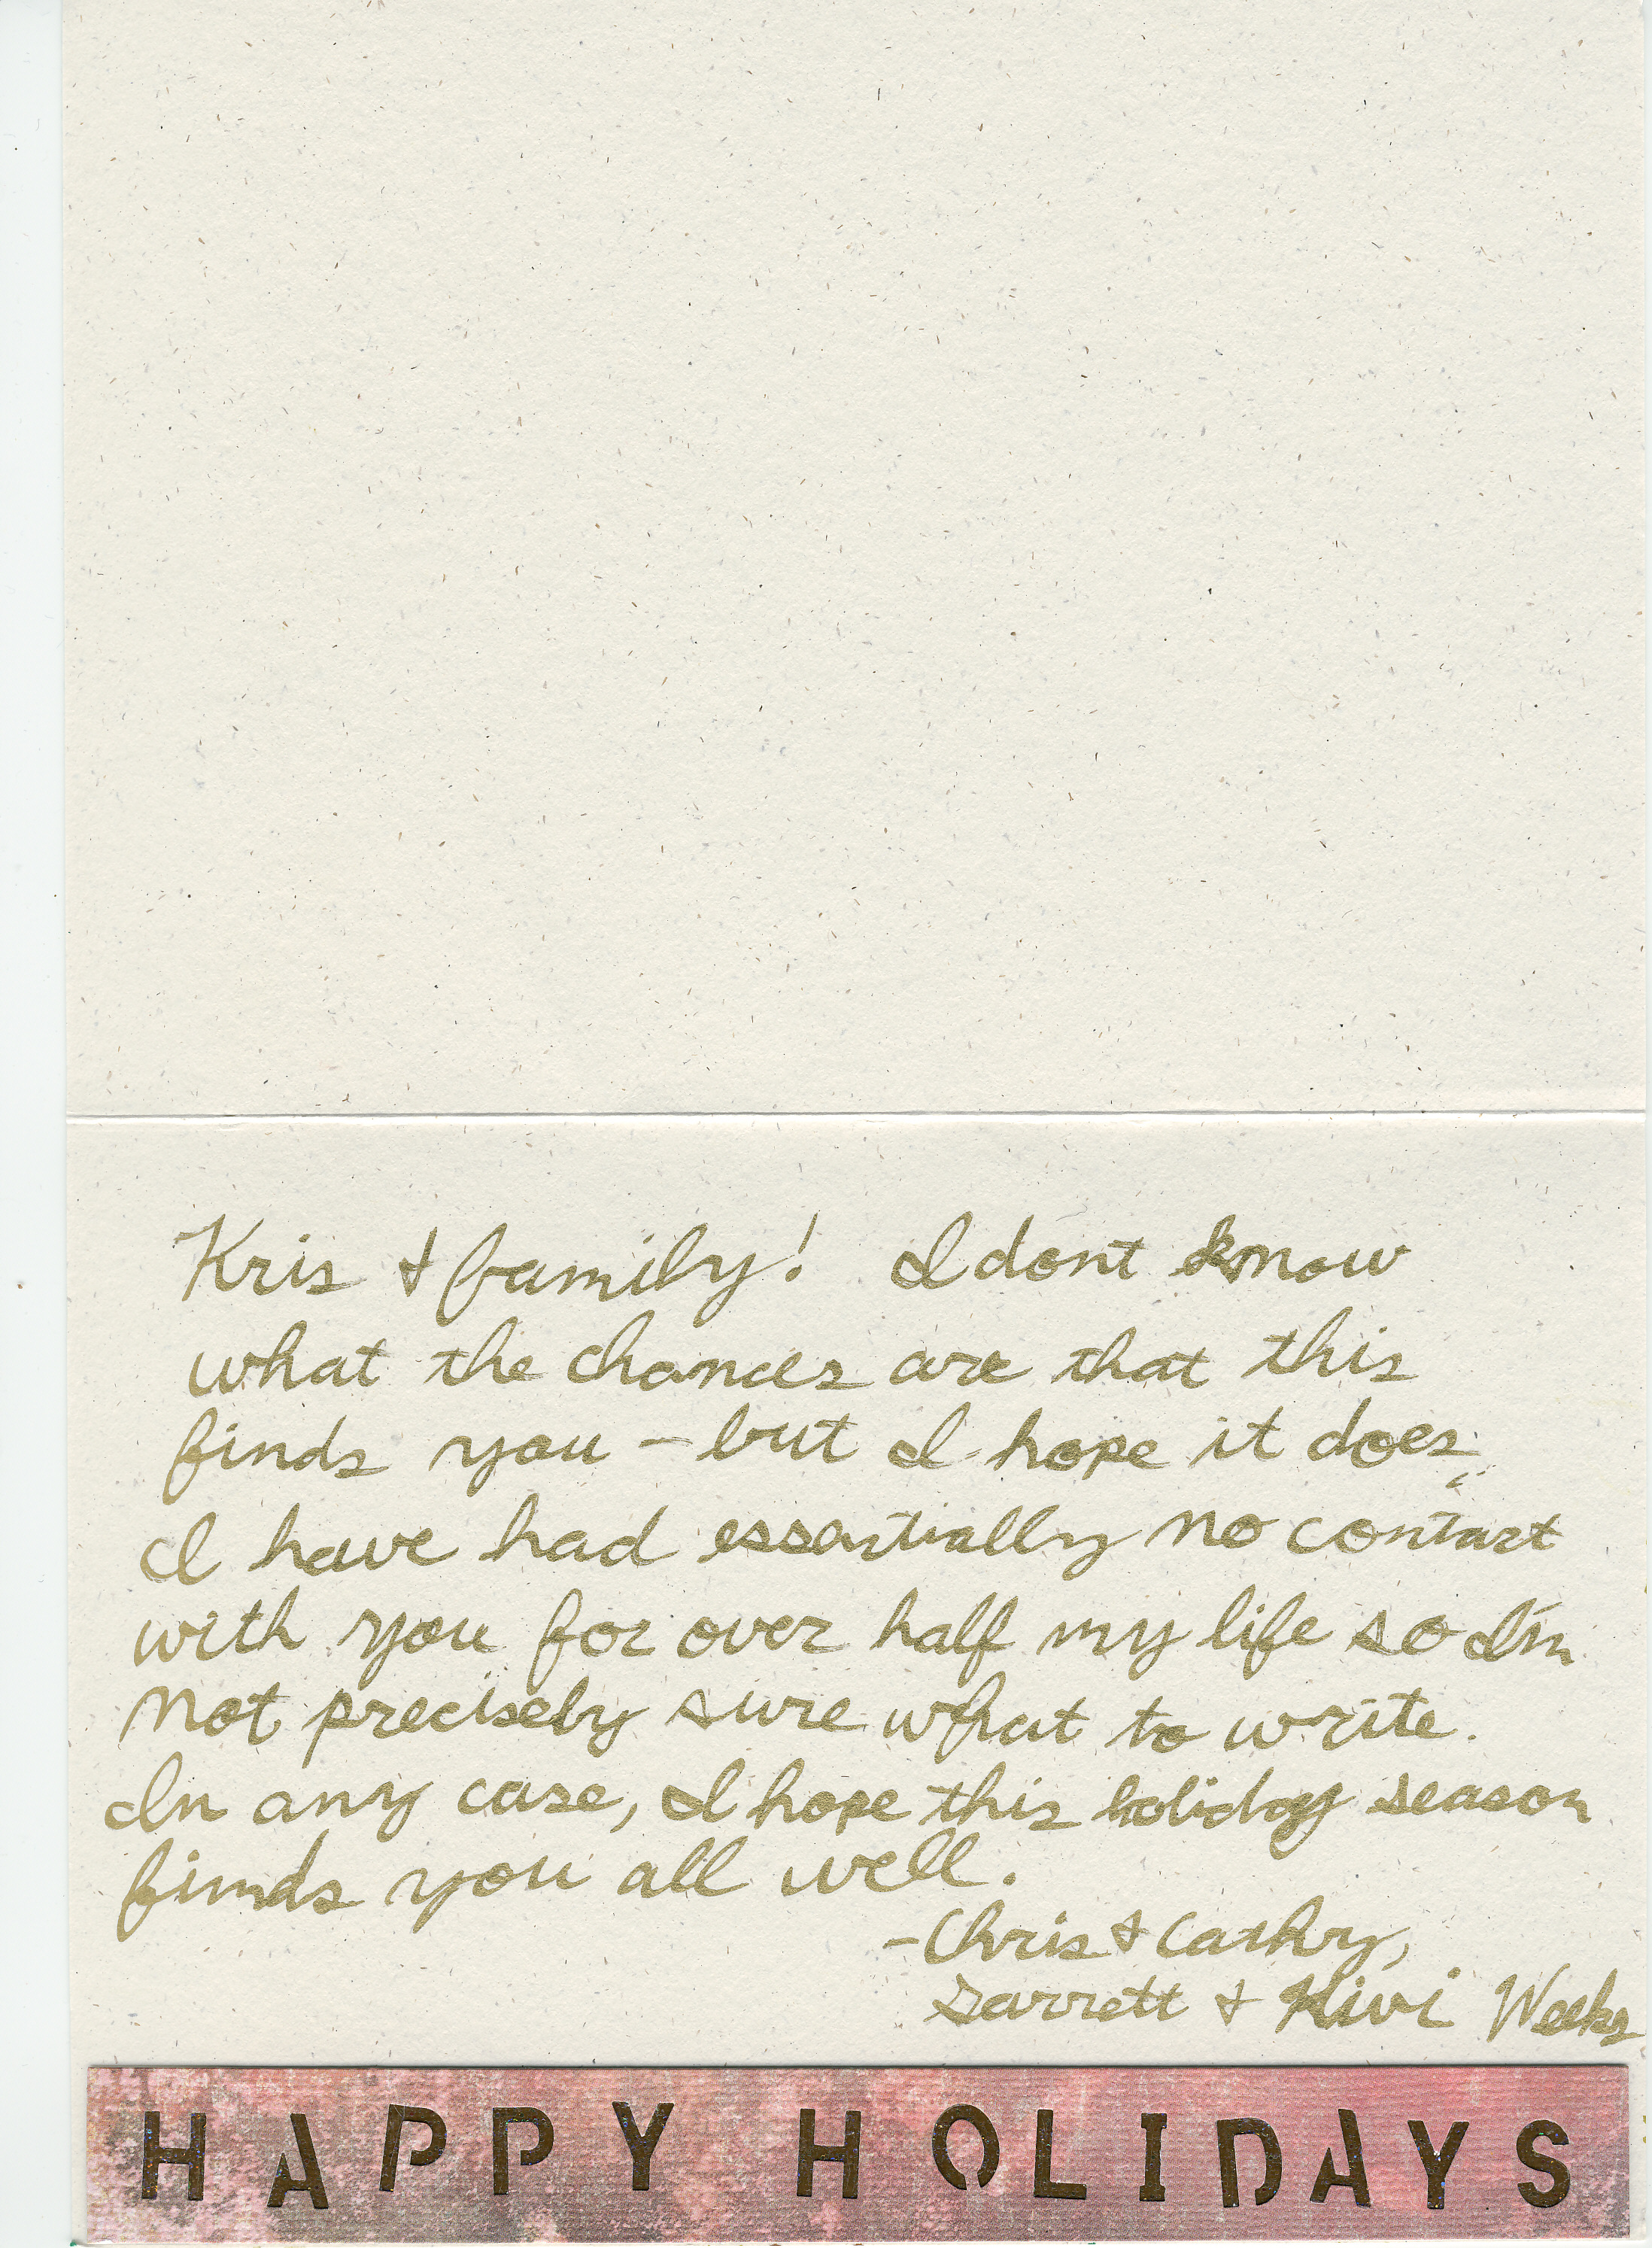 Kris & family! I dont know
what the chances are that this
finds you – but I hope it does.
I have had essentially no contact
with you for over half my life so I'm
not precisely sure what to write.
In any case, I hope this holiday season
finds you all well.
- Chris & Cathy,
Garrett & Kivi Weeks
HAPPY HOLIDAYS